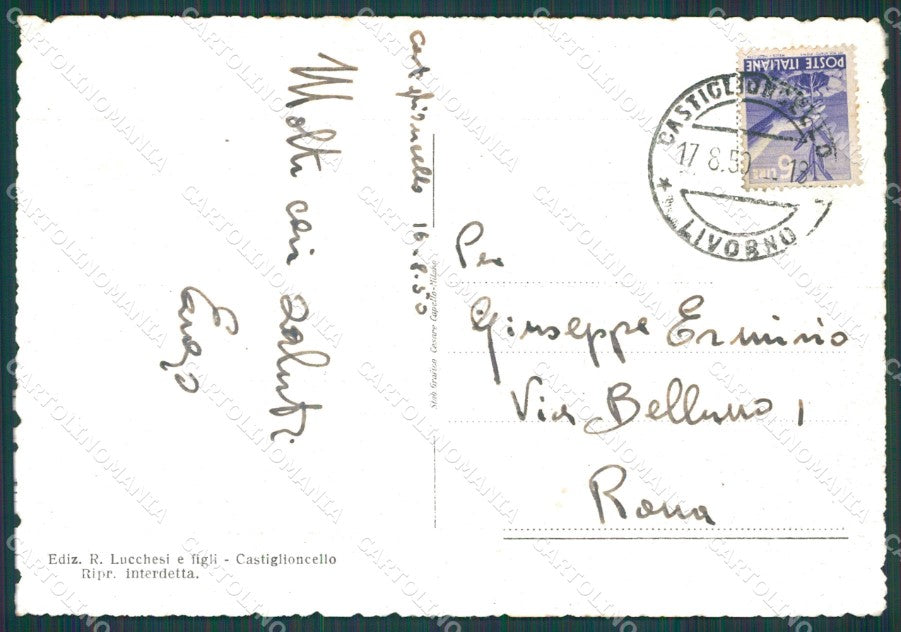 Castiglioncello 16-8.50
Molti cari saluti.
Enzo
POSTE ITALIANE
6 LIRE
CASTIGLIONCELLO
17.8.50
LIVORNO
Per
Giuseppe Erminio
Via Belluno 1
Roma
Stab. Grafico Cesare Capello-Milano
Ediz. R. Lucchesi e figli - Castiglioncello
Ripr. interdetta.
CARTOLINOMANIA